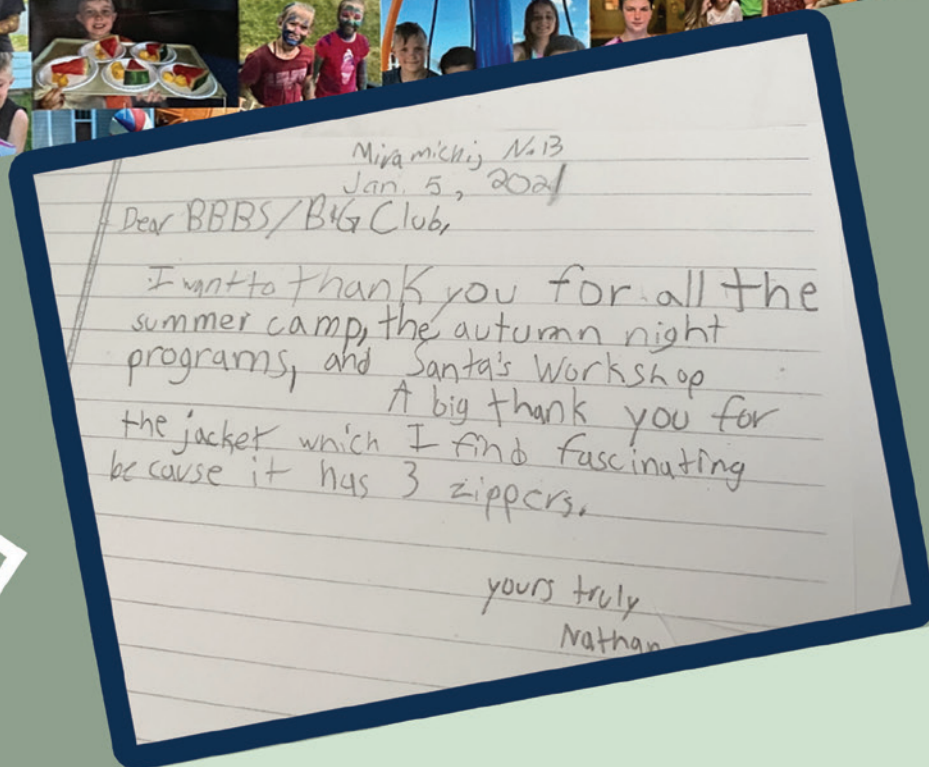 Miramichi, N.B
Jan. 5, 2021
Dear BBBS/B+G Club,
I want to thank you for all the
summer camp, the autumn night
programs, and Santa's Workshop
A big thank you for
the jacket which I find fascinating
because it has 3 zippers.
yours truly
Nathan